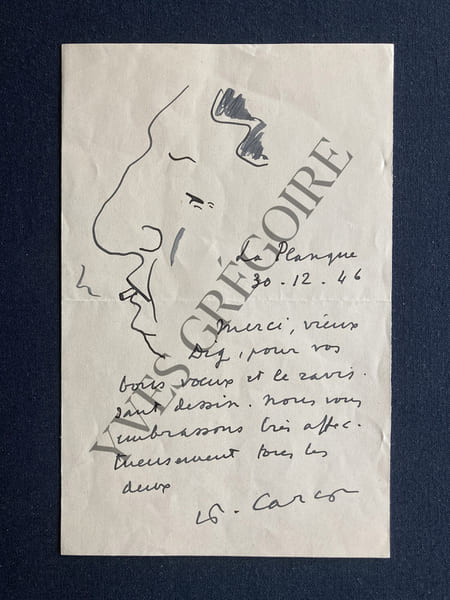 La Planque
30.12.46
Merci, vieux
Dig, pour vos
bons vœux et le ravis-
sant dessin. Nous vous
embrassons très affec-
tueusement tous les
deux
F. Carco
YVES GREGOIRE